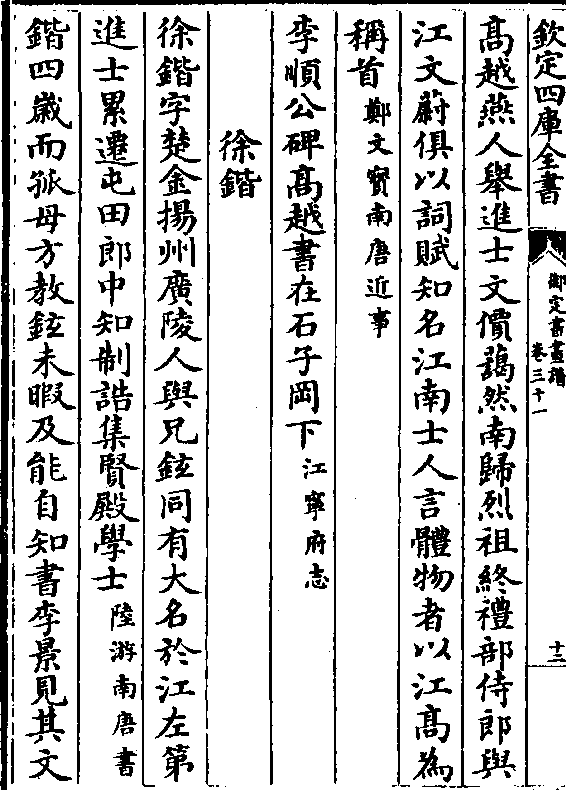 欽定四庫全書
御定書畫譜
卷三十一
十二
高越燕人舉進士文價藹然南歸烈祖終禮部侍郎與
江文蔚俱以詞賦知名江南士人言體物者以江高為
稱首鄭文寳南唐近事
李順公碑高越書在石子岡下江寧府志
徐鍇
徐鍇字楚金揚州廣陵人與兄鉉同有大名於江左第
進士累遷屯田郎中知制誥集賢殿學士陸游南唐書
鍇四歲而孤母方教鉉未暇及能自知書李景見其文